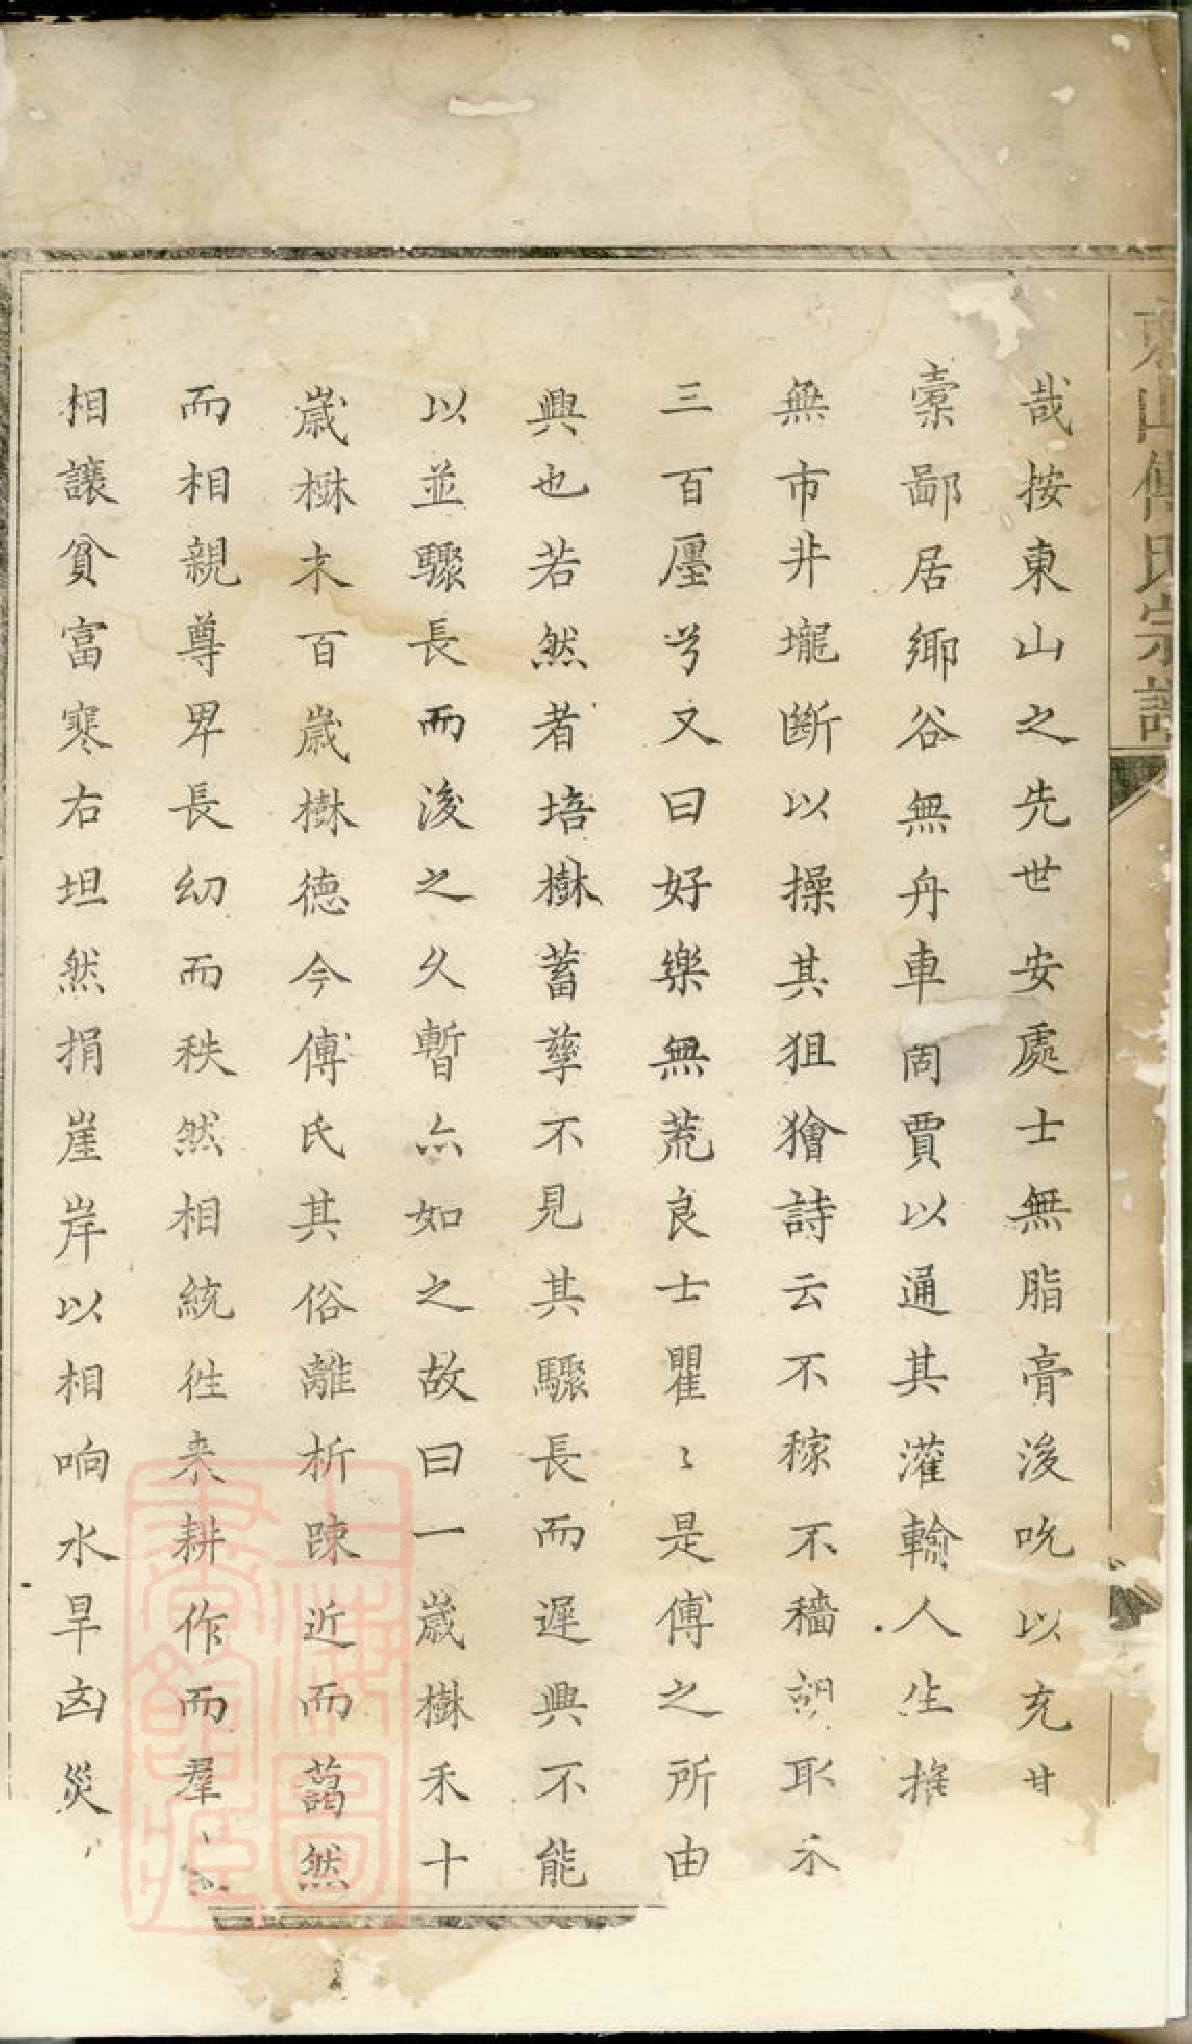 東山傅氏宗譜
哉按東山之先世安處士無脂膏浚吮以充甘
橐鄙居鄉谷無舟車啇賈以通其灌輸人生
無市井壠斷以操其狙獪詩云不稼不穡胡取禾
三百廛兮又曰好樂無荒良士瞿〻是傅之所由
興也若然者培樹蓄孳不見其驟長而遲興不能
以並驟長而浚之久暫亦如之故曰一歲樹禾十
歲樹木百歲樹德今傅氏其俗離析踈近而藹然
而相親尊卑長幼而秩然相統徃来耕作而羣
相讓貧富寒右坦然捐崖岸以相响水旱凶災
上海圖書館藏